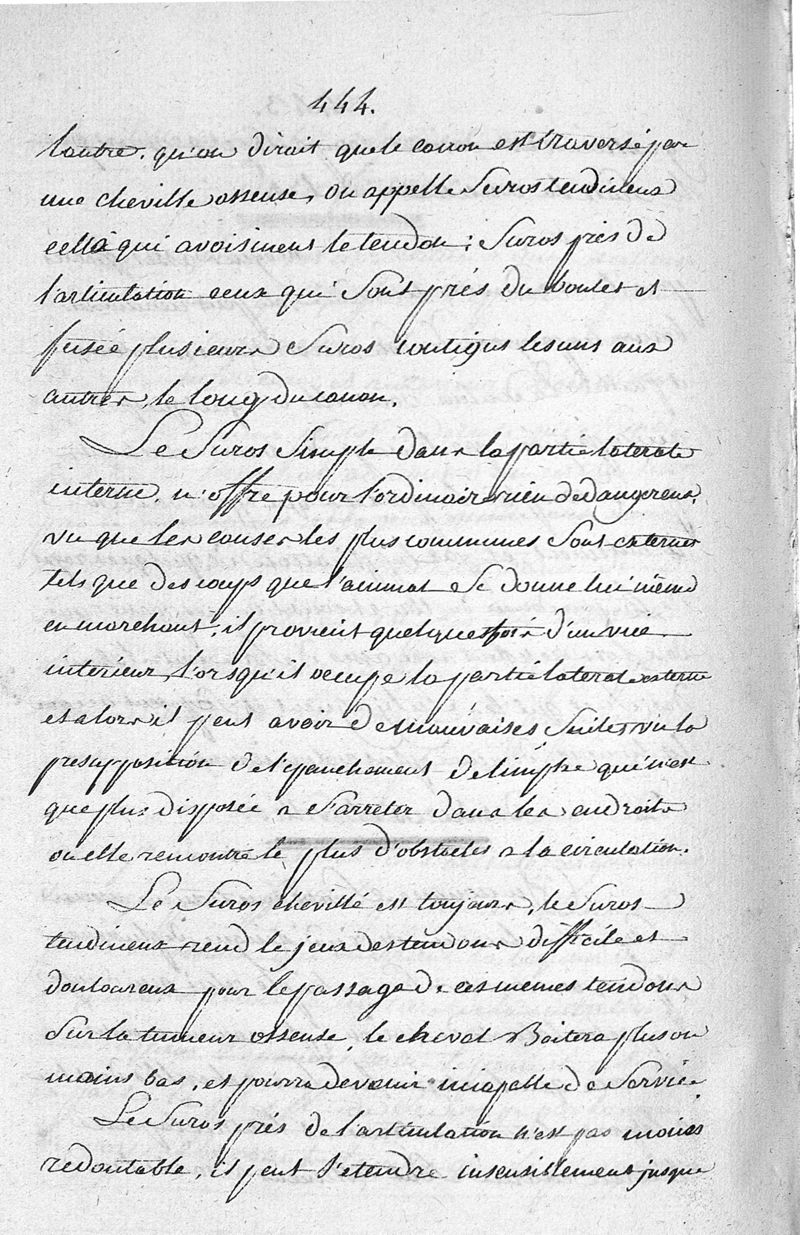 444.
lautre. qu'on diroit que le canon est traversé par
une cheville osseuse, on appelle Suros tendineux
cella qui avoisinent le tendon; Suros prés de
l'articulation ceux qui Sont prés du boulet et
fusée plusieurs Suros contigus les uns aux
autres, le long du canon.
Le Suros Simple dans la partie laterale
interne, n'offre pour l'ordinaire rien de dangereux,
vu que les causes les plus communes Sont externes
tels que des coups que l'animal Se donne lui même
en marchant, il provient quelque fois d'un vice
interieur, lorsqu'il occupe la partie laterale externe
et alors il peut avoir de mauvaises Suites, vu la
presupposition de l'epanchement de limphe qui n'est
que plus disposée a S'arreter dans les endroits
ou elle rencontre le plus d'obstacles a la circulation.
Le Suros chevillé est toujours, le Suros
tendineux rend le jeux des tendons difficile et
douloureux pour le passage de ces mêmes tendons
Sur la tumeur osseuse, le cheval Boitera plus ou
moins bas, et pourra devenir incapable de Service
Le Suros prés de l'articulation n'est pas moins
redoutable, il peut S'etendre insensiblement jusque